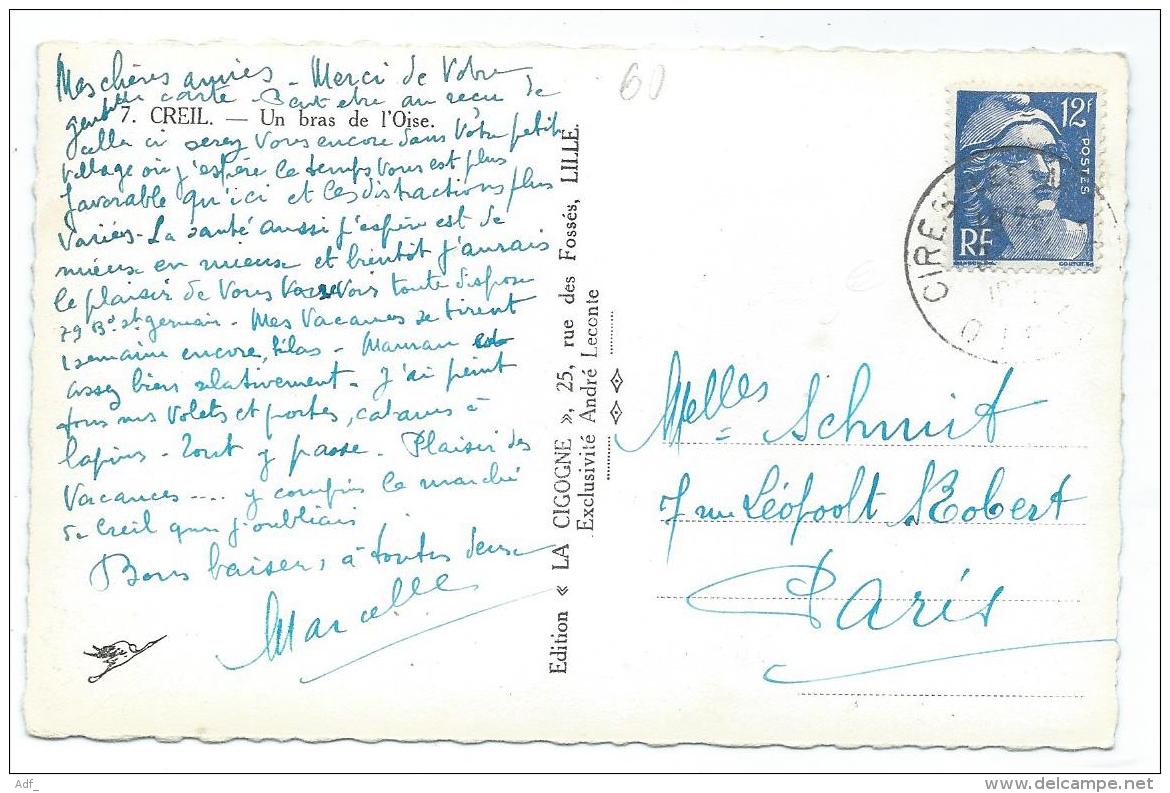 Mes chères amies - Merci de Votre
gentille carte - Peut etre au reçu de
7. CREIL. — Un bras de l'Oise.
celle ci serez Vous encore dans Votre petit
village où j'espère le temps Vous est plus
favorable qu'ici et les distractions plus
Variées - La santé aussi j'espère est de
mieux en mieux et bientôt j'aurais
le plaisir de Vous Voir toute dispose
79 Bd St. Germain - Mes Vacances se tirent
1 semaine encore, hélas - Maman est
assez bien relativement - J'ai peint
tous nos Volets et portes, cabanes à
lapins - Tout y passe - Plaisir des
Vacances .... y compris le marché
de Creil que j'oubliais
Bons baisers à toutes deux
Marcelle
Edition « LA CIGOGNE », 25, rue des Fossés, LILLE.
Exclusivité André Leconte
60
12F
POSTES
RF
CIRES
Melles Schmit
7 rue Léopolt Robert
Paris
Adf_
www.delcampe.net